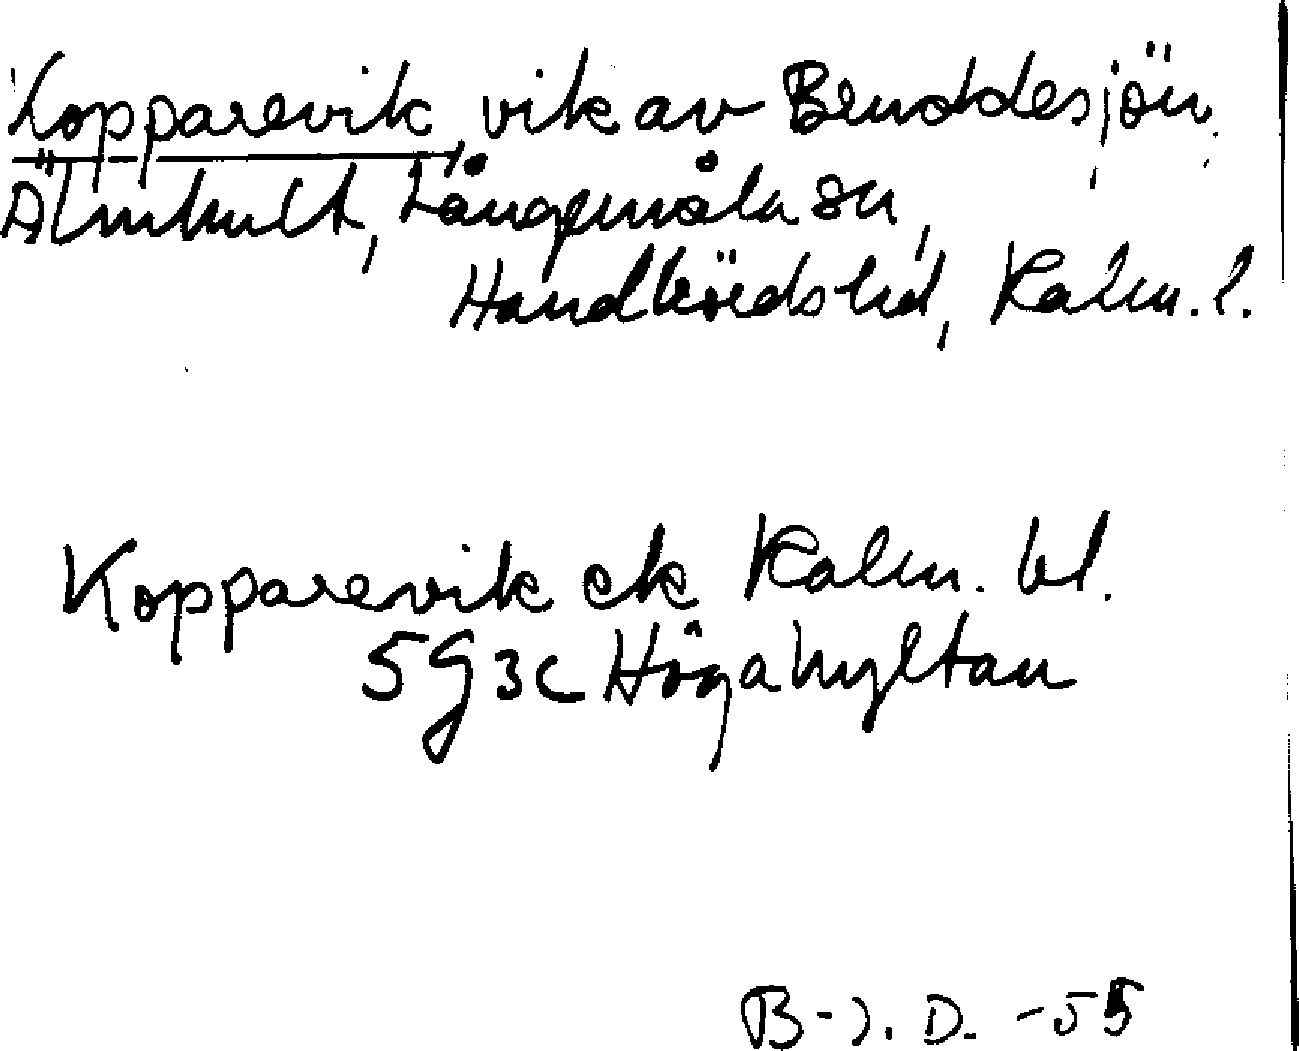 Kopparevik, vik av Bruddesjön,
Älmhult, Långemåla sn,
Handbörds hd, Kalm. l.
Kopparevik ek Kalm. bl.
5G3c Högahyltan
B-J. D. -55